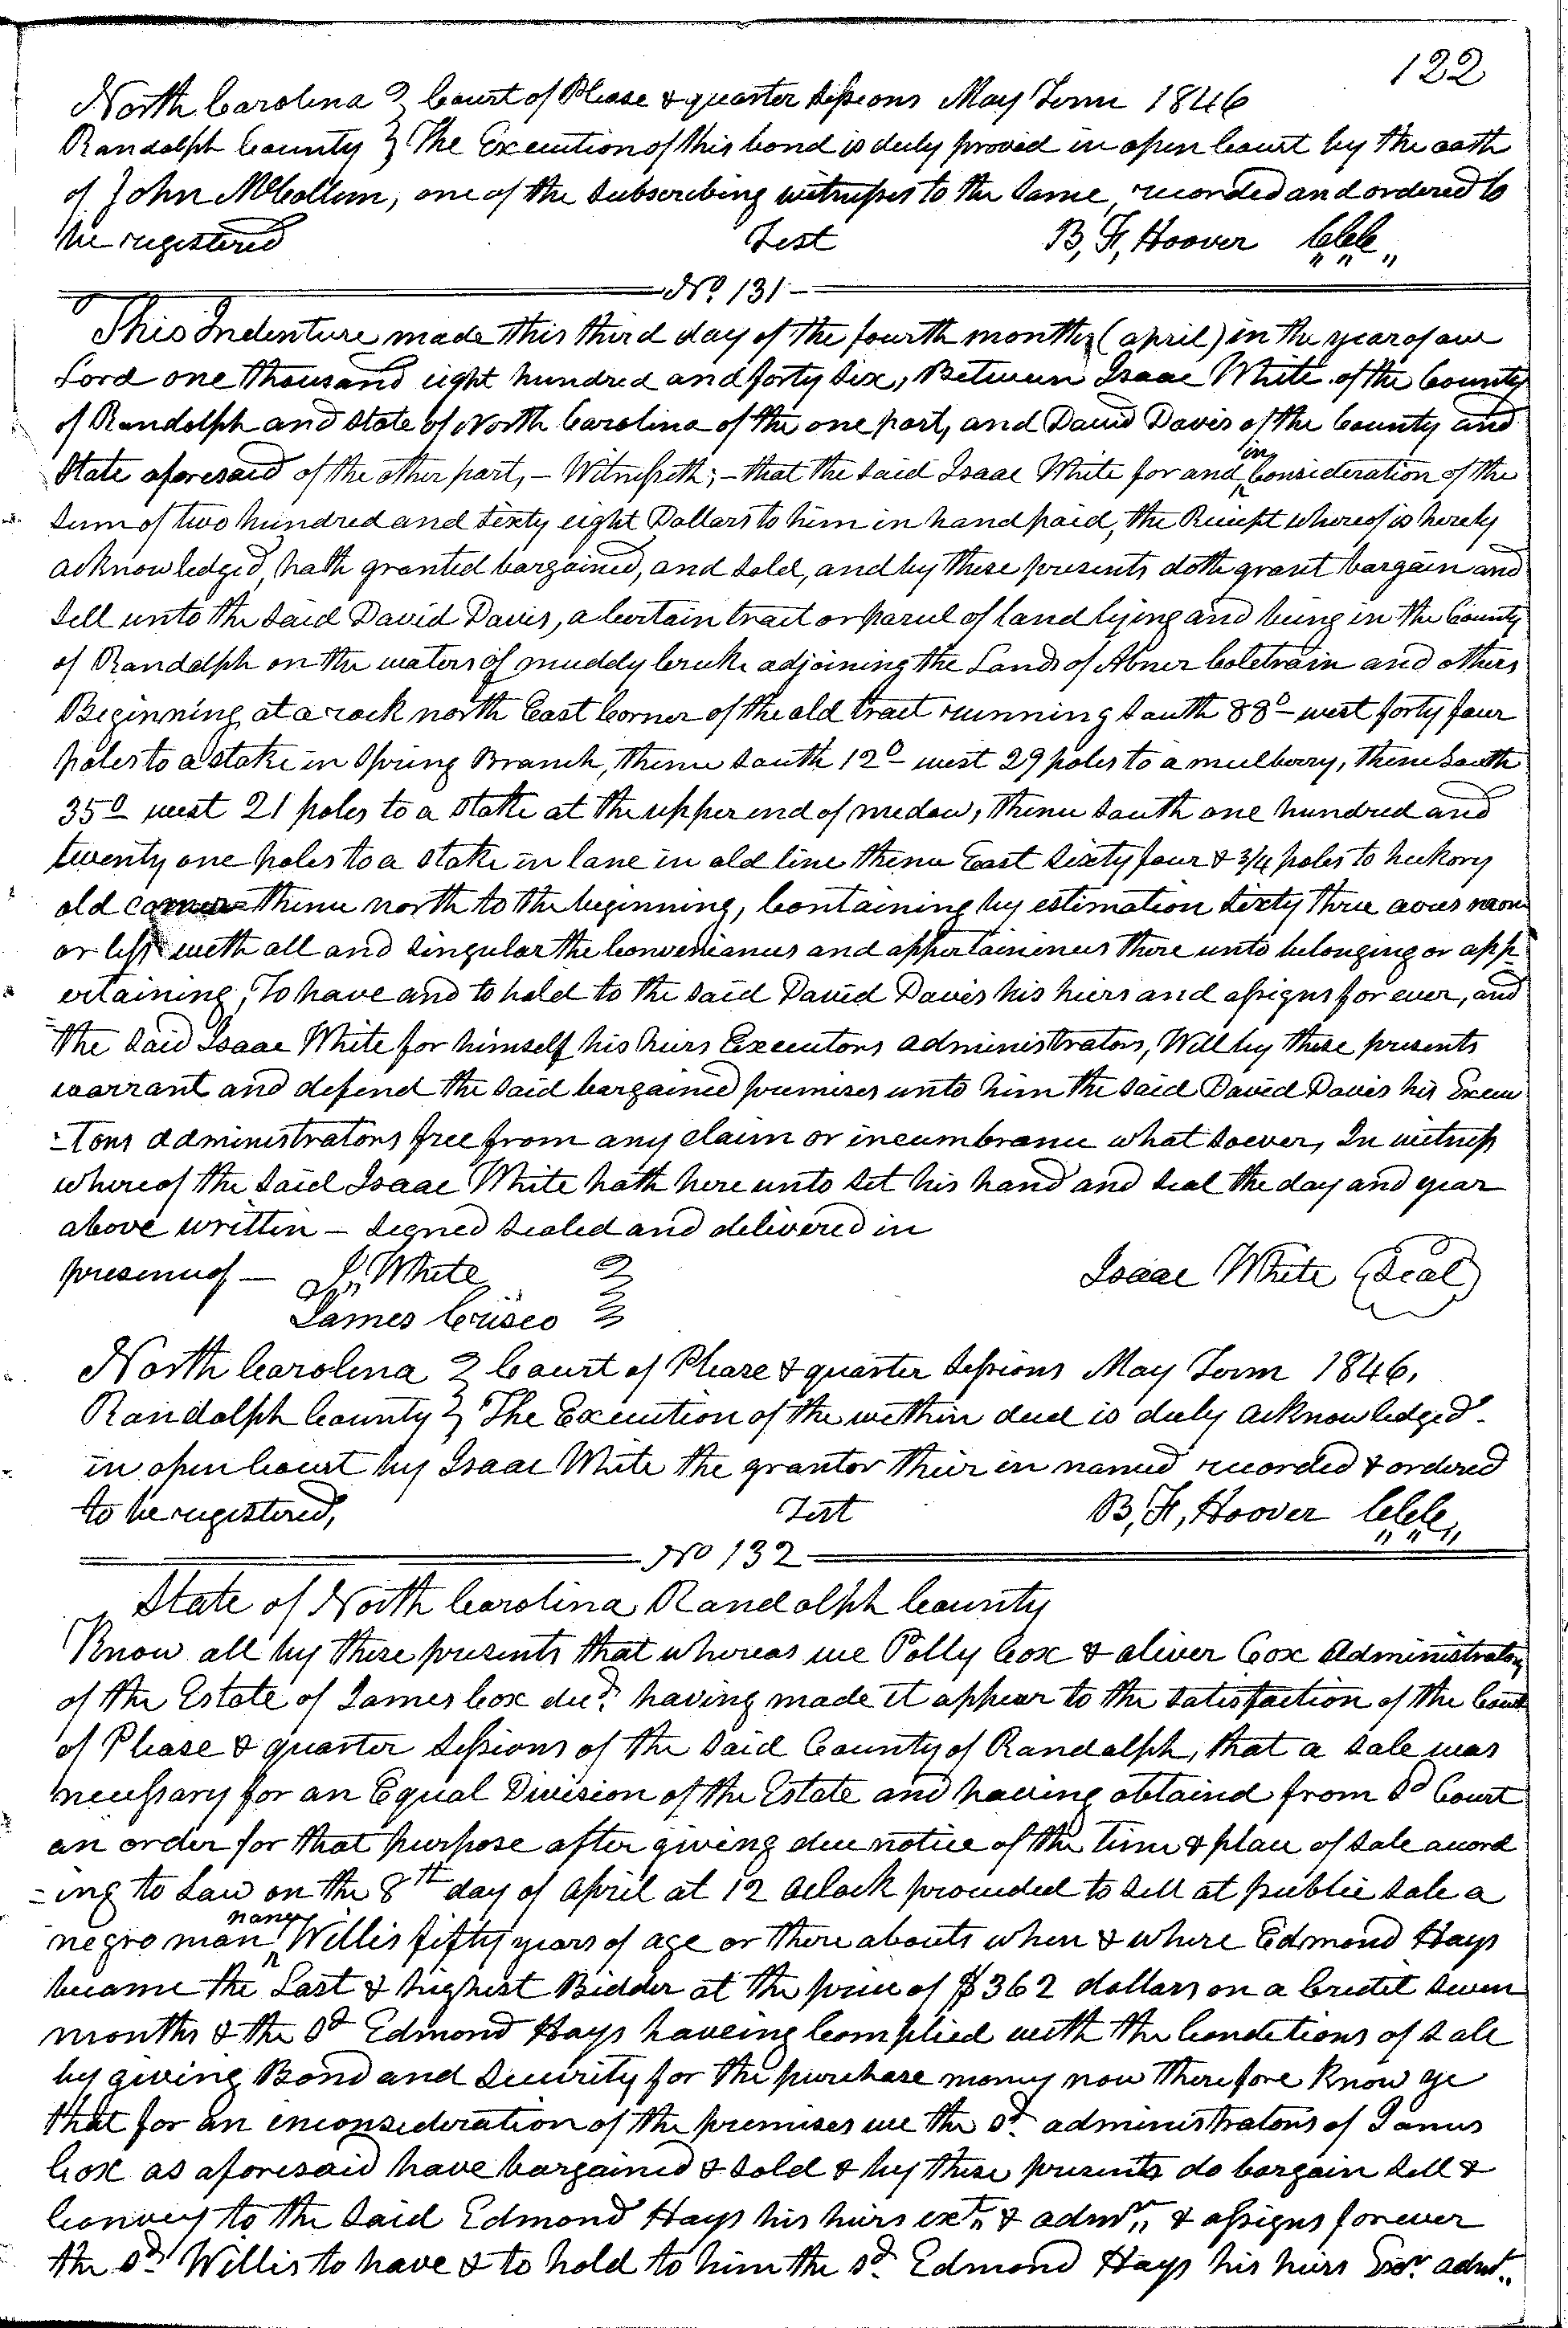 122
North Carolina } Court of Please & quarter Sessions May Term 1846
Randolph County } The Execution of this bond is duly proved in open Court by the oath
of John McCollum, one of the subscribing witnesses to the same, recorded and ordered to
be registered Test B, F, Hoover CCC,,
No. 131
This Indenture made this third day of the fourth month (april) in the year of our
Lord one thousand eight hundred and forty six, Between Isaac White of the County
of Randolph and State of North Carolina of the one part, and David Davis of the County and
State aforesaid of the other part, – Witnesseth; – that the said Isaac White for and in Consideration of the
sum of two hundred and sixty eight Dollars to him in hand paid, the Reciept whereof is hereby
acknowledged, hath granted bargained, and sold, and by these presents doth grant bargain and
sell unto the said David Davis, a Certain tract or parcel of land lying and being in the County
of Randolph on the waters of muddy Creeke adjoining the Lands of Abner Coletrain and others
Beginning at a rock north East Corner of the old tract running south 88° west forty four
poles to a stake in Spring Branch, thence south 12° west 29 poles to a mulberry, thence south
35° west 21 poles to a stake at the upper end of medow, thence south one hundred and
twenty one poles to a stake in lane in old line thence East sixty four & 3/4 poles to hickory
old corner thence north to the beginning, Containing by estimation sixty three acres more
or less with all and singular the Conveniances and appertainences there unto belonging or app-
ertaining, To have and to hold to the said David Davis his heirs and assigns for ever, and
the said Isaac White for himself his heirs Executors administrators, Will by these presents
warrant and defend the said bargained premises unto him the said David Davis his Execu
-tors administrators free from any claim or incumbrance what soever, In witness
whereof the said Isaac White hath here unto set his hand and seal the day and year
above written – Signed sealed and delivered in
presence of – J, White } Isaac White (Seal)
James Crisco }
North Carolina } Court of Please & quarter Sessions May Term 1846,
Randolph County } The Execution of the within deed is duly acknowledged
in open Court by Isaac White the grantor their in named recorded & ordered
to be registered, Test B, F, Hoover CCC,,
No 132
State of North Carolina Randolph County
Know all by these presents that whereas we Polly Cox & oliver Cox Administrators
of the Estate of James Cox decd. having made it appear to the satisfaction of the Court
of Please & quarter Sessions of the said County of Randolph, that a sale was
necessary for an Equal Division of the Estate and haveing obtaind from sd Court
an order for that purpose after giving due notice of the time & place of sale accord
-ing to Law on the 8th day of April at 12 oclock proceeded to sell at public sale a
negro man namd Willis fifty years of age or there abouts when & where Edmond Hays
became the Last & highest Bidder at the price of $362 dollars on a Credit seven
months & the sd Edmond Hays haveing Complied with the Conditions of sale
by giving Bond and Security for the purchase money now therefore Know ye
that for an inconsideration of the premises we the sd. administrators of James
Cox as aforesaid have bargained & sold & by these presents do bargain sell &
Convey to the said Edmond Hays his heirs exr,, & admr,, & assigns forever
the sd. Willis to have & to hold to him the sd. Edmond Hays his heirs Exr. admr,,